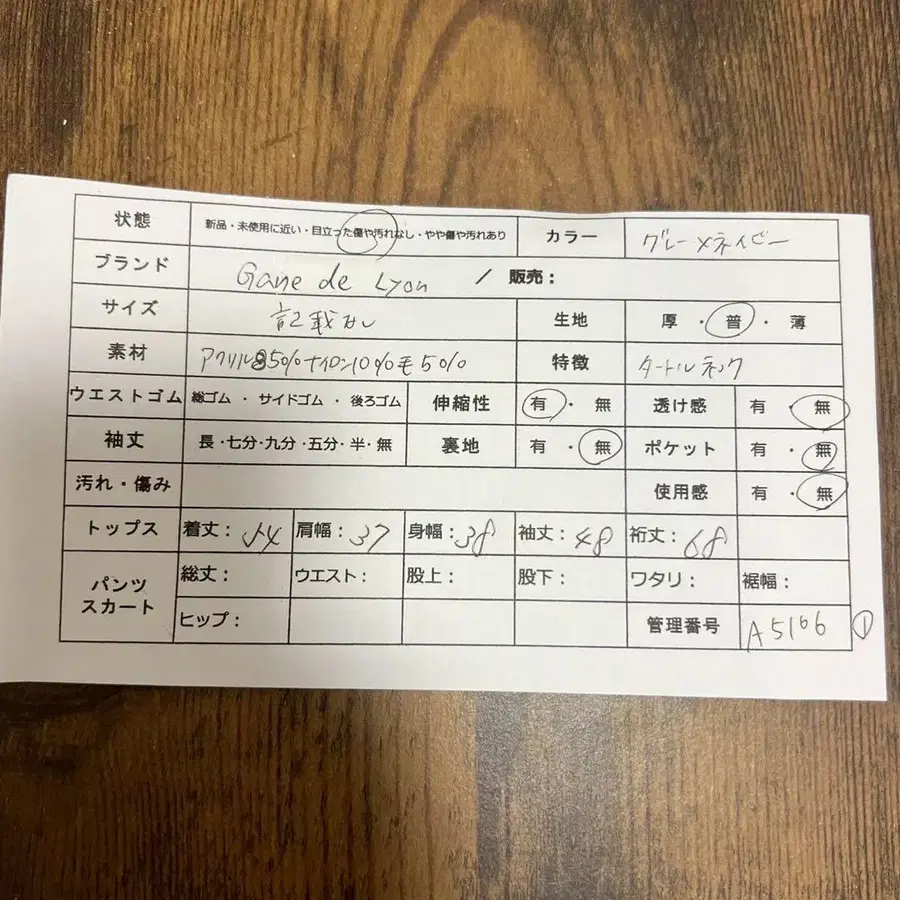 状態 新品・未使用に近い・目立った傷や汚れなし・やや傷や汚れあり カラー グレー×ネイビー
ブランド Game de Lyon / 販売：
サイズ 記載なし 生地 厚・普・薄
素材 アクリル85%ナイロン10%毛5% 特徴 タートルネック
ウエストゴム 総ゴム・サイドゴム・後ろゴム 伸縮性 有・無 透け感 有・無
袖丈 長・七分・九分・五分・半・無 裏地 有・無 ポケット 有・無
汚れ・傷み 使用感 有・無
トップス 着丈：54 肩幅：37 身幅：38 袖丈：48 裄丈：68
パンツ スカート 総丈： ウエスト： 股上： 股下： ワタリ： 裾幅：
ヒップ： 管理番号 A5166 ①